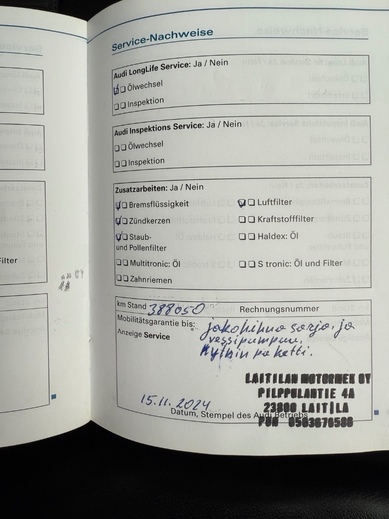 Service-Nachweise
Audi LongLife Service: Ja / Nein
Ölwechsel
Inspektion
Audi Inspektions Service: Ja / Nein
Ölwechsel
Inspektion
Zusatzarbeiten: Ja / Nein
Bremsflüssigkeit
Luftfilter
Zündkerzen
Kraftstofffilter
Staub-
und Pollenfilter
Haldex: Öl
Multitronic: Öl
S tronic: Öl und Filter
Zahnriemen
km Stand 388050
Rechnungsnummer
Mobilitätsgarantie bis:
Anzeige Service
jakohihna sarja, ja
vesipumppu.
paketti.
LAITILAN MOTORHEK OY
PILPPULANTIE 4A
23800 LAITILA
PUH 0503676586
15.11.2024
Datum, Stempel des Audi Betriebs
Filter